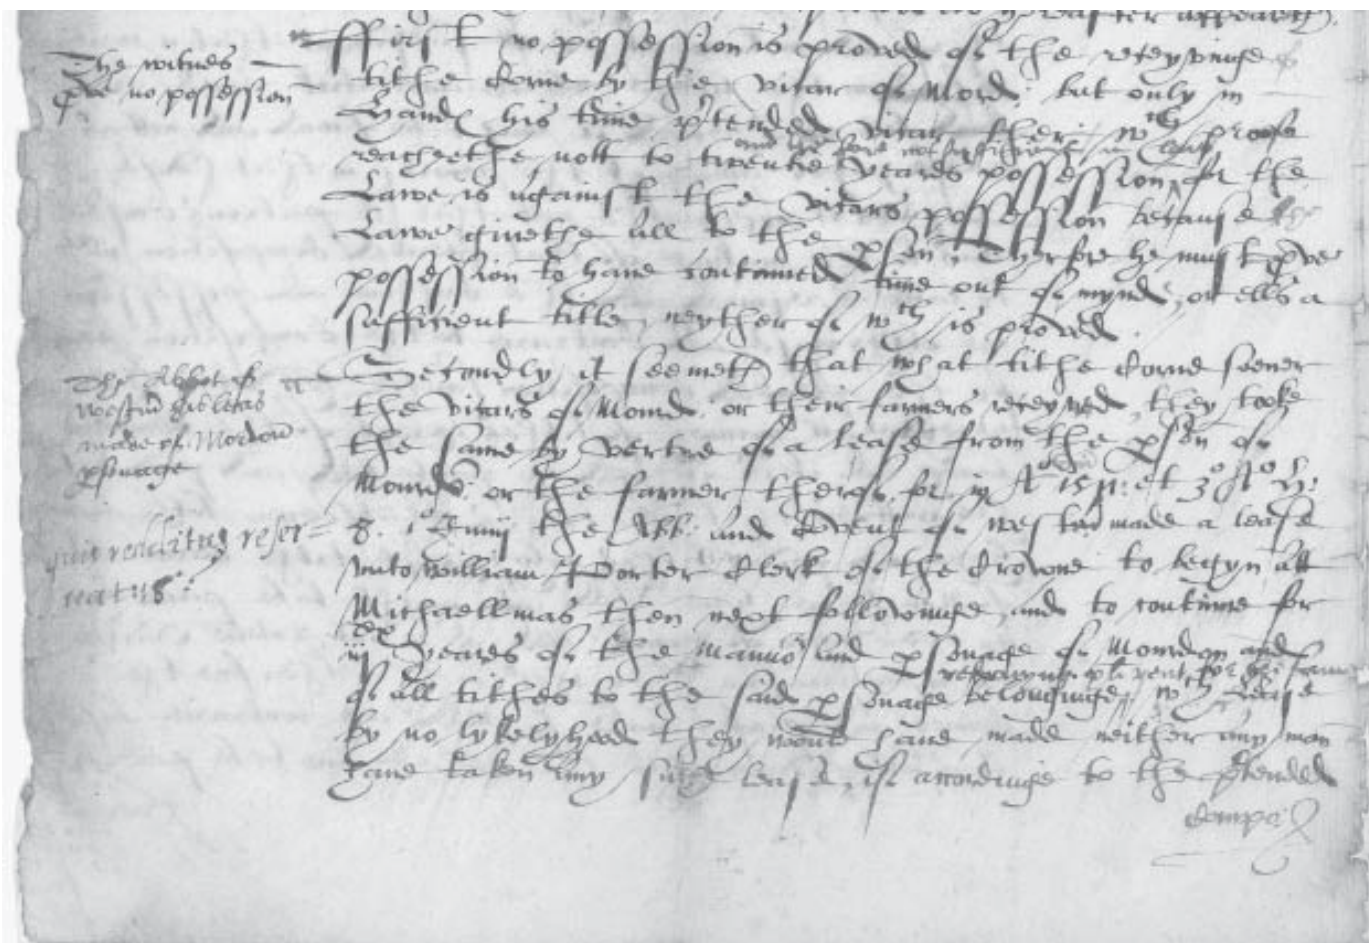 hereafter appeareth.
The witnes
pve no possession
ffirst no possession is proved of the receyvinge of
tithe Corne by the vicar of Mord: but only in
hand his time ptended vicar ther wch proofe
and therfore not sufficient in Lawe
reacheth nott to twentie yeares possession, for the
Lawe is against the vicars possession because the
Lawe giveth all to the pson. Therfore he must pve
possession to have contynued time out of mynde, or ells a
sufficient title, neyther of wch is proved.
The Abbot of
westm
made of Mordon
psonage
Secondly it seemeth that what tithe Corne soever
the vicars of Mord. or their farmers receyved, they tooke
the same by vertue of a lease from the pson of
or the farmer therof, for in Ao 1511: et 3o Ao H:
8. the Abb: and Covent of westm made a lease
reser=
vat:18
unto William Porter Clerk of the Crowne to begyn att
Michaellmas then next followinge and to contynue for
yeares of the mannor and psonage of Mordon and
rent for the same
of all tithes to the said psonage belonginge, wch Lease
by no lykelyhood they would have made neither any man
have taken any such lease, if accordinge to the ptended
Compo